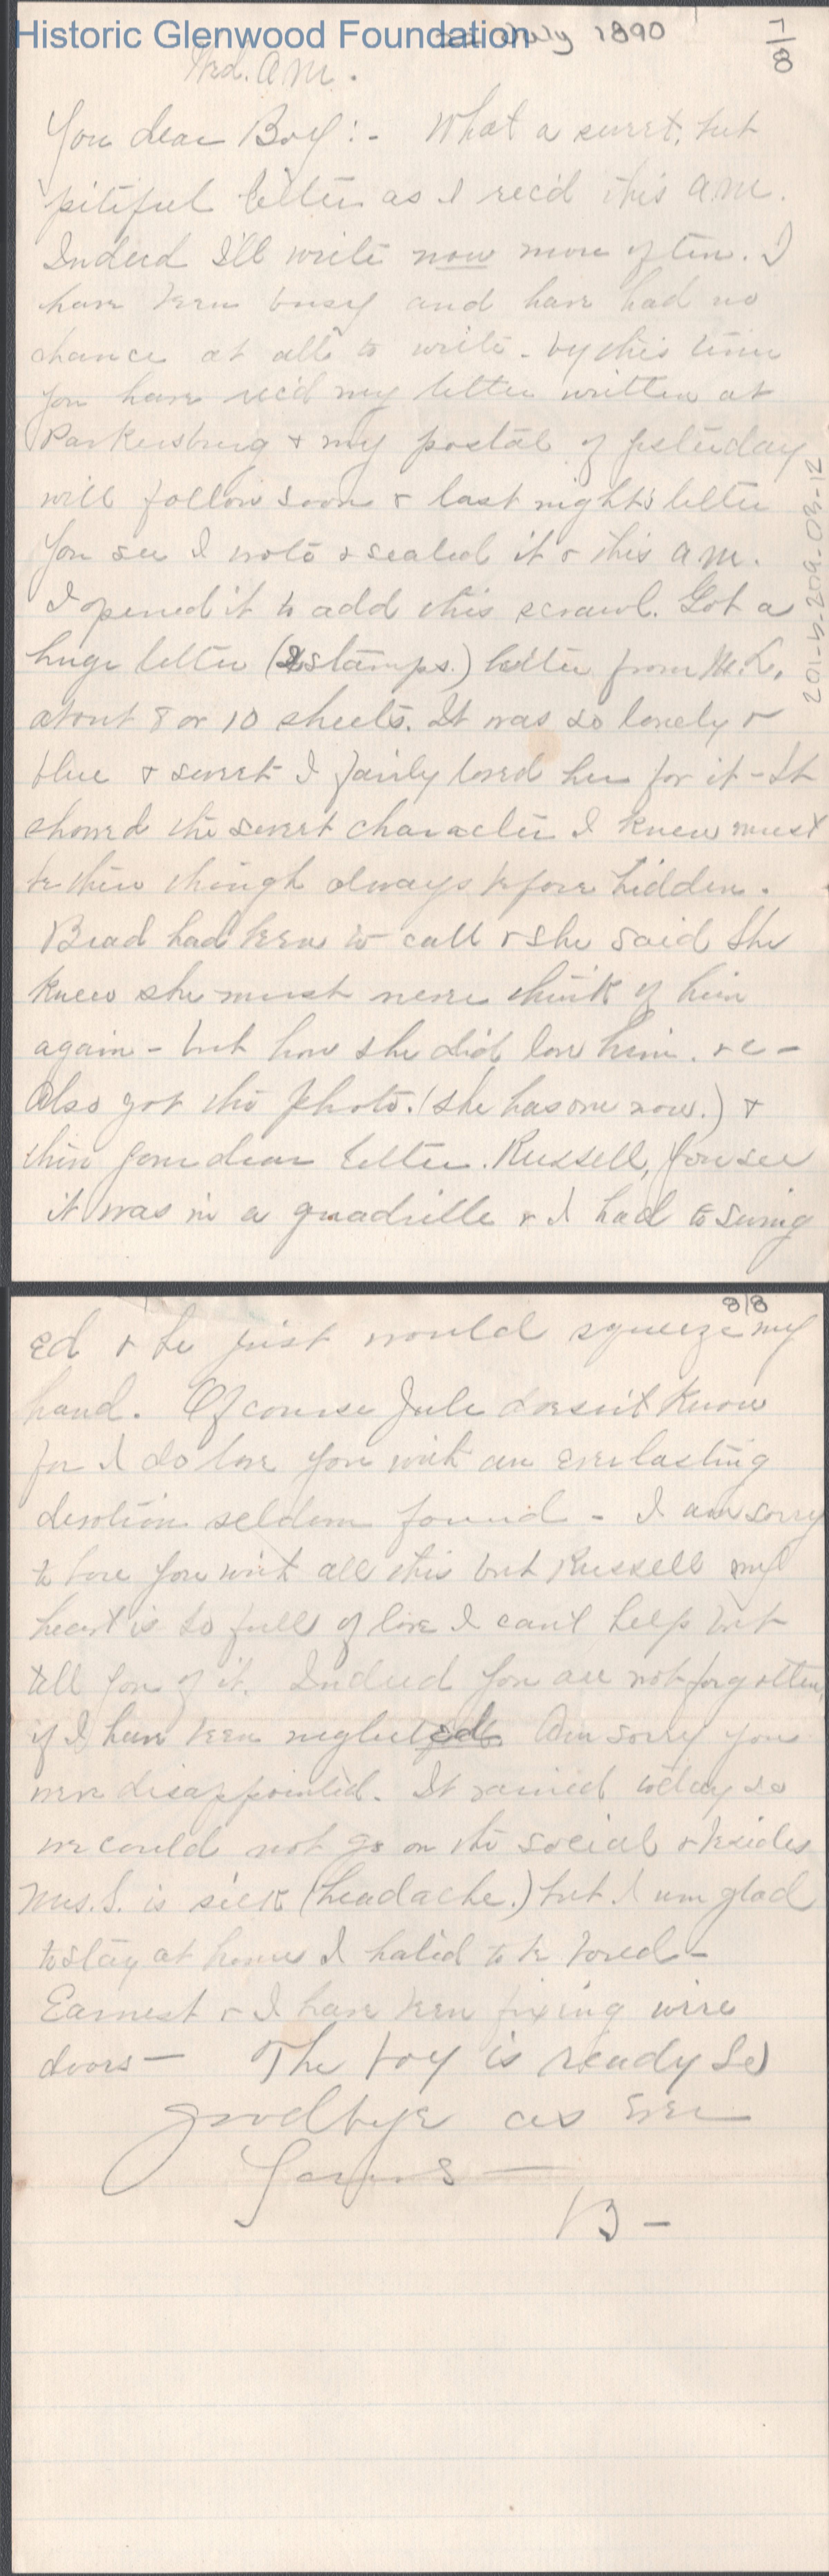 Historic Glenwood Foundation
July 1890
7/8
Wed. A.M.
You dear Boy:- What a sweet, but
pitiful letter as I rec'd this A.M.
Indeed I'll write now more often. I
have been busy and have had no
chance at all to write - by this time
you have rec'd my letter written at
Parkersburg & my postal of yesterday
will follow soon & last night's letter
You see I wrote & sealed it & this A.M.
I opened it to add this scrawl. Got a
huge letter (2 stamps.) letter from M.L.
about 8 or 10 sheets. It was so lovely &
blue & sweet I fairly loved her for it - It
showed the sweet character I knew must
be there though always before hidden.
Brad had been to call & she said she
knew she must never think of him
again - but how she did love him. &c -
Also got the photo. (she has one now.) &
then your dear letter. Russell, you see
it was in a quadrille & I had to swing
201-b-209-03-12
8/8
Ed & he just would squeeze my
hand. Of course Jule doesn't know
for I do love you with an everlasting
devotion seldom found - I am sorry
to bore you with all this but Russell my
heart is so full of love I can't help but
tell you of it. Indeed you are not forgotten,
if I have been neglected. Am sorry you
were disappointed. It rained today so
we could not go on the social & besides
Mrs. S. is sick (headache.) but I am glad
to stay at home I hated to be bored -
Earnest & I have been fixing wire
doors - The boy is ready So
goodbye as ever
Yours -
B -